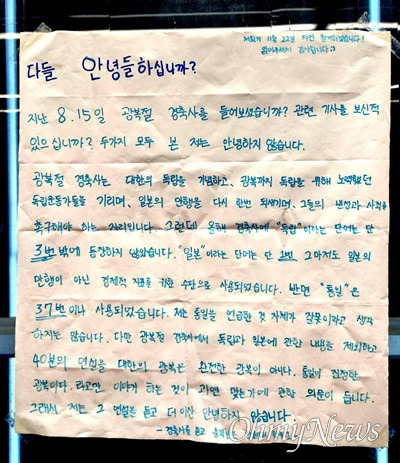 저희가 11월 22일 자진 철거하겠습니다!
읽어주셔서 감사합니다:)
다들 안녕들하십니까?
지난 8.15일 광복절 경축사를 들어보셨습니까? 관련 기사를 보신적
있으십니까? 두가지 모두 본 저는 안녕하지 않습니다.
광복절 경축사는 대한의 독립을 기념하고, 광복까지 독립을 위해 노력했던
독립운동가들을 기리며, 일본의 만행을 다시 한번 되새기며, 그들의 반성과 사과를
촉구해야 하는 자리입니다. 그런데 올해 경축사에 "독립"이라는 단어는 단
3번 밖에 등장하지 않았습니다. "일본"이라는 단어는 단 2번, 그마저도 일본의
만행이 아닌 경제적 지표를 위한 수단으로 사용되었습니다. 반면 "통일"은
37번이나 사용되었습니다. 저는 통일을 언급한 것 자체가 잘못이라고 생각
하지는 않습니다. 다만 광복절 경축사에서 독립과 일본에 관한 내용을 제외하고
40분의 연설을 대한의 광복은 완전한 광복이 아니다. 통일이 진정한
광복이다. 라고만 이야기 하는 것이 과연 맞는가에 관한 의문이 듭니다.
그래서 저는 그 연설을 듣고 더 이상 안녕하지 않습니다.
- 경축사를 듣고
OhmyNews